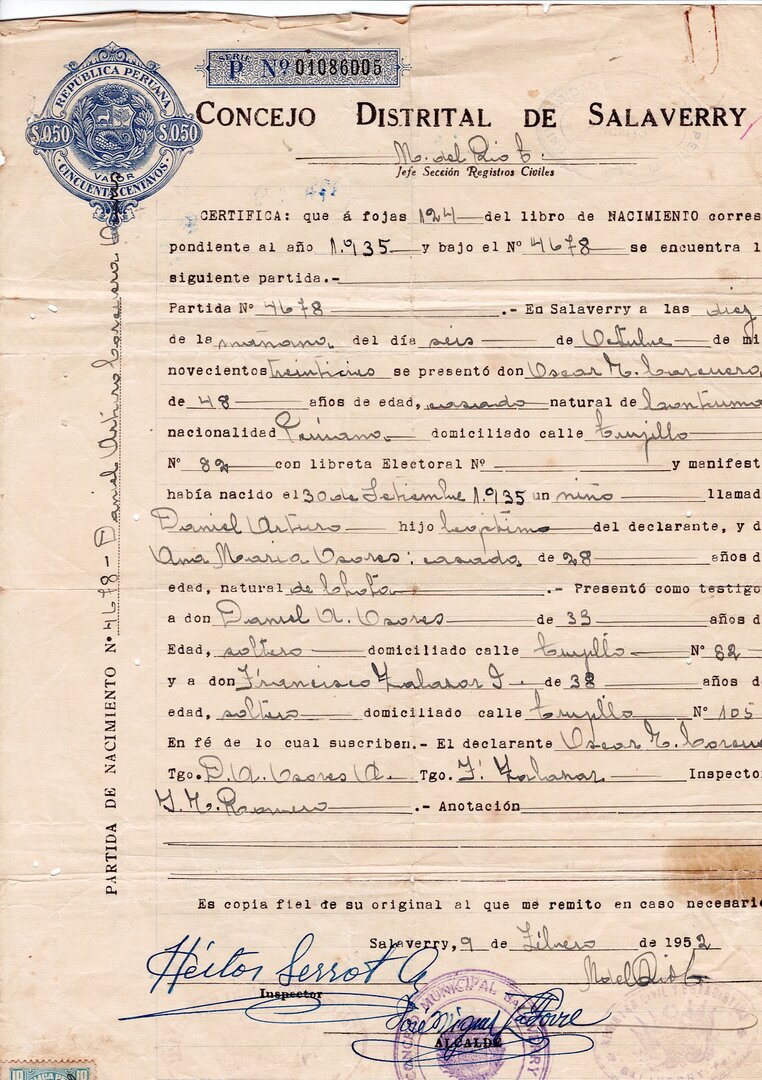 SERIE P Nº 01086005
REPUBLICA PERUANA
S/.0.50 S/.0.50
VALOR
CINCUENTA CENTAVOS
CONCEJO DISTRITAL DE SALAVERRY
M. del Rio
Jefe Sección Registros Civiles
CERTIFICA: que á fojas 124 del libro de NACIMIENTO corres
pondiente al año 1.935 y bajo el Nº 4678 se encuentra l
siguiente partida.-
Partida Nº 4678 .- En Salaverry a las diez
de la mañana del día seis de Octubre de mi
novecientos treinticinco se presentó don Oscar M. Corcuera
de 48 años de edad, casado natural de Contuma
nacionalidad Peruano domiciliado calle Trujillo
Nº 82 con libreta Electoral Nº y manifest
había nacido el 30 de Setiembre 1.935 un niño llamad
Daniel Arturo hijo del declarante, y d
Ana Maria Osores; casada de 28 años d
edad, natural de Chota .- Presentó como testigo
a don Daniel A. Osores de 33 años d
Edad, soltero domiciliado calle Trujillo Nº 82
y a don Francisco Zalazar de 38 años d
edad, soltero domiciliado calle Trujillo Nº 105
En fé de lo cual suscriben.- El declarante Oscar M. Corcue
Tgo. D. A. Osores Tgo. F. Zalazar Inspecto
Romero .- Anotación
Es copia fiel de su original al que me remito en caso necesario
Salaverry, 9 de Febrero de 1952
Héctor Serrot
Inspector
M del Rio
José Miguel Latorre
ALCALDE
CONCEJO MUNICIPAL
PARTIDA DE NACIMIENTO Nº 4678 - Daniel Arturo Corcuera